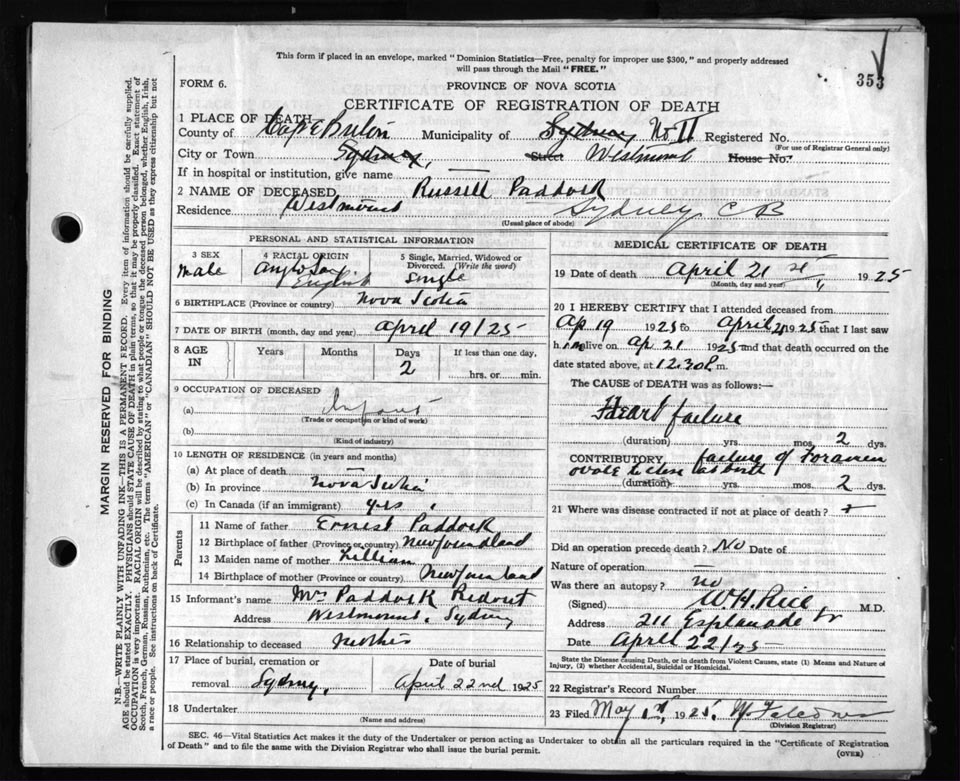 This form if placed in an envelope, marked "Dominion Statistics—Free, penalty for improper use $300," and properly addressed
will pass through the Mail "FREE."
353
FORM 6.
PROVINCE OF NOVA SCOTIA
CERTIFICATE OF REGISTRATION OF DEATH
1 PLACE OF DEATH
County of Cape Breton Municipality of Sydney No. 11 Registered No.
(For use of Registrar General only)
City or Town Sydney, Street Westmount House No.
If in hospital or institution, give name —
2 NAME OF DECEASED Russell Paddock
Residence Westmount Sydney C B
(Usual place of abode)
PERSONAL AND STATISTICAL INFORMATION
3 SEX 4 RACIAL ORIGIN 5 Single, Married, Widowed or
Divorced. (Write the word)
male Anglo Sax. English Single
6 BIRTHPLACE (Province or country) Nova Scotia
7 DATE OF BIRTH (month, day and year) April 19/25
8 AGE IN Years Months Days If less than one day,
2 hrs. or min.
9 OCCUPATION OF DECEASED
(a) Infant
(Trade or occupation or kind of work)
(b)
(Kind of industry)
10 LENGTH OF RESIDENCE (in years and months)
(a) At place of death —
(b) In province Nova Scotia
(c) In Canada (if an immigrant) yes
Parents
11 Name of father Ernest Paddock
12 Birthplace of father (Province or country) Newfoundland
13 Maiden name of mother Lillian
14 Birthplace of mother (Province or country) Newfoundland
15 Informant's name Mrs Paddock Ridout
Address Westmount, Sydney
16 Relationship to deceased Mother
17 Place of burial, cremation or Date of burial
removal Sydney, April 22nd 1925
18 Undertaker
(Name and address)
MEDICAL CERTIFICATE OF DEATH
19 Date of death April 21 st, 1925
(Month, day and year)
20 I HEREBY CERTIFY that I attended deceased from
Ap 19 1925 to April 21 1925 that I last saw
him alive on Ap 21 1925 and that death occurred on the
date stated above, at 12.30 P.m.
The CAUSE of DEATH was as follows:—
Heart failure
(duration) yrs. mos. 2 dys.
CONTRIBUTORY failure of Foramen
ovale to close at birth
(duration) yrs. mos. 2 dys.
21 Where was disease contracted if not at place of death?
Did an operation precede death? No Date of
Nature of operation —
Was there an autopsy? no
(Signed) W. H. Rice, M.D.
Address 211 Esplanade
Date April 22/25
State the Disease causing Death, or in death from Violent Causes, state (1) Means and Nature of
Injury, (2) whether Accidental, Suicidal or Homicidal.
22 Registrar's Record Number
23 Filed May 1st, 1925.
(Division Registrar)
SEC. 46—Vital Statistics Act makes it the duty of the Undertaker or person acting as Undertaker to obtain all the particulars required in the "Certificate of Registration
of Death" and to file the same with the Division Registrar who shall issue the burial permit.
(OVER)
MARGIN RESERVED FOR BINDING
N.B.—WRITE PLAINLY WITH UNFADING INK—THIS IS A PERMANENT RECORD. Every item of information should be carefully supplied.
AGE should be stated EXACTLY. PHYSICIANS should STATE CAUSE OF DEATH in plain terms, so that it may be properly classified. Exact statement of
OCCUPATION is very important. RACIAL ORIGIN will be described by stating to what people or tongue the deceased person belonged, whether English, Irish,
Scotch, French, German, Russian, Ruthenian, etc. The terms "AMERICAN" or "CANADIAN" SHOULD NOT BE USED as they express citizenship but not
a race or people. See instructions on back of Certificate.